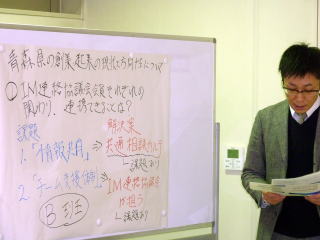 青森県の創業・起業の現状と方向性について
① IM連携協議会会員それぞれの
関わり、連携できることは?
課題
解決策
1.「情報共有」⇒共通相談カルテ
└課題あり
2.「チーム支援体制」⇒IM連携協議会
が担う
└課題あり
B班